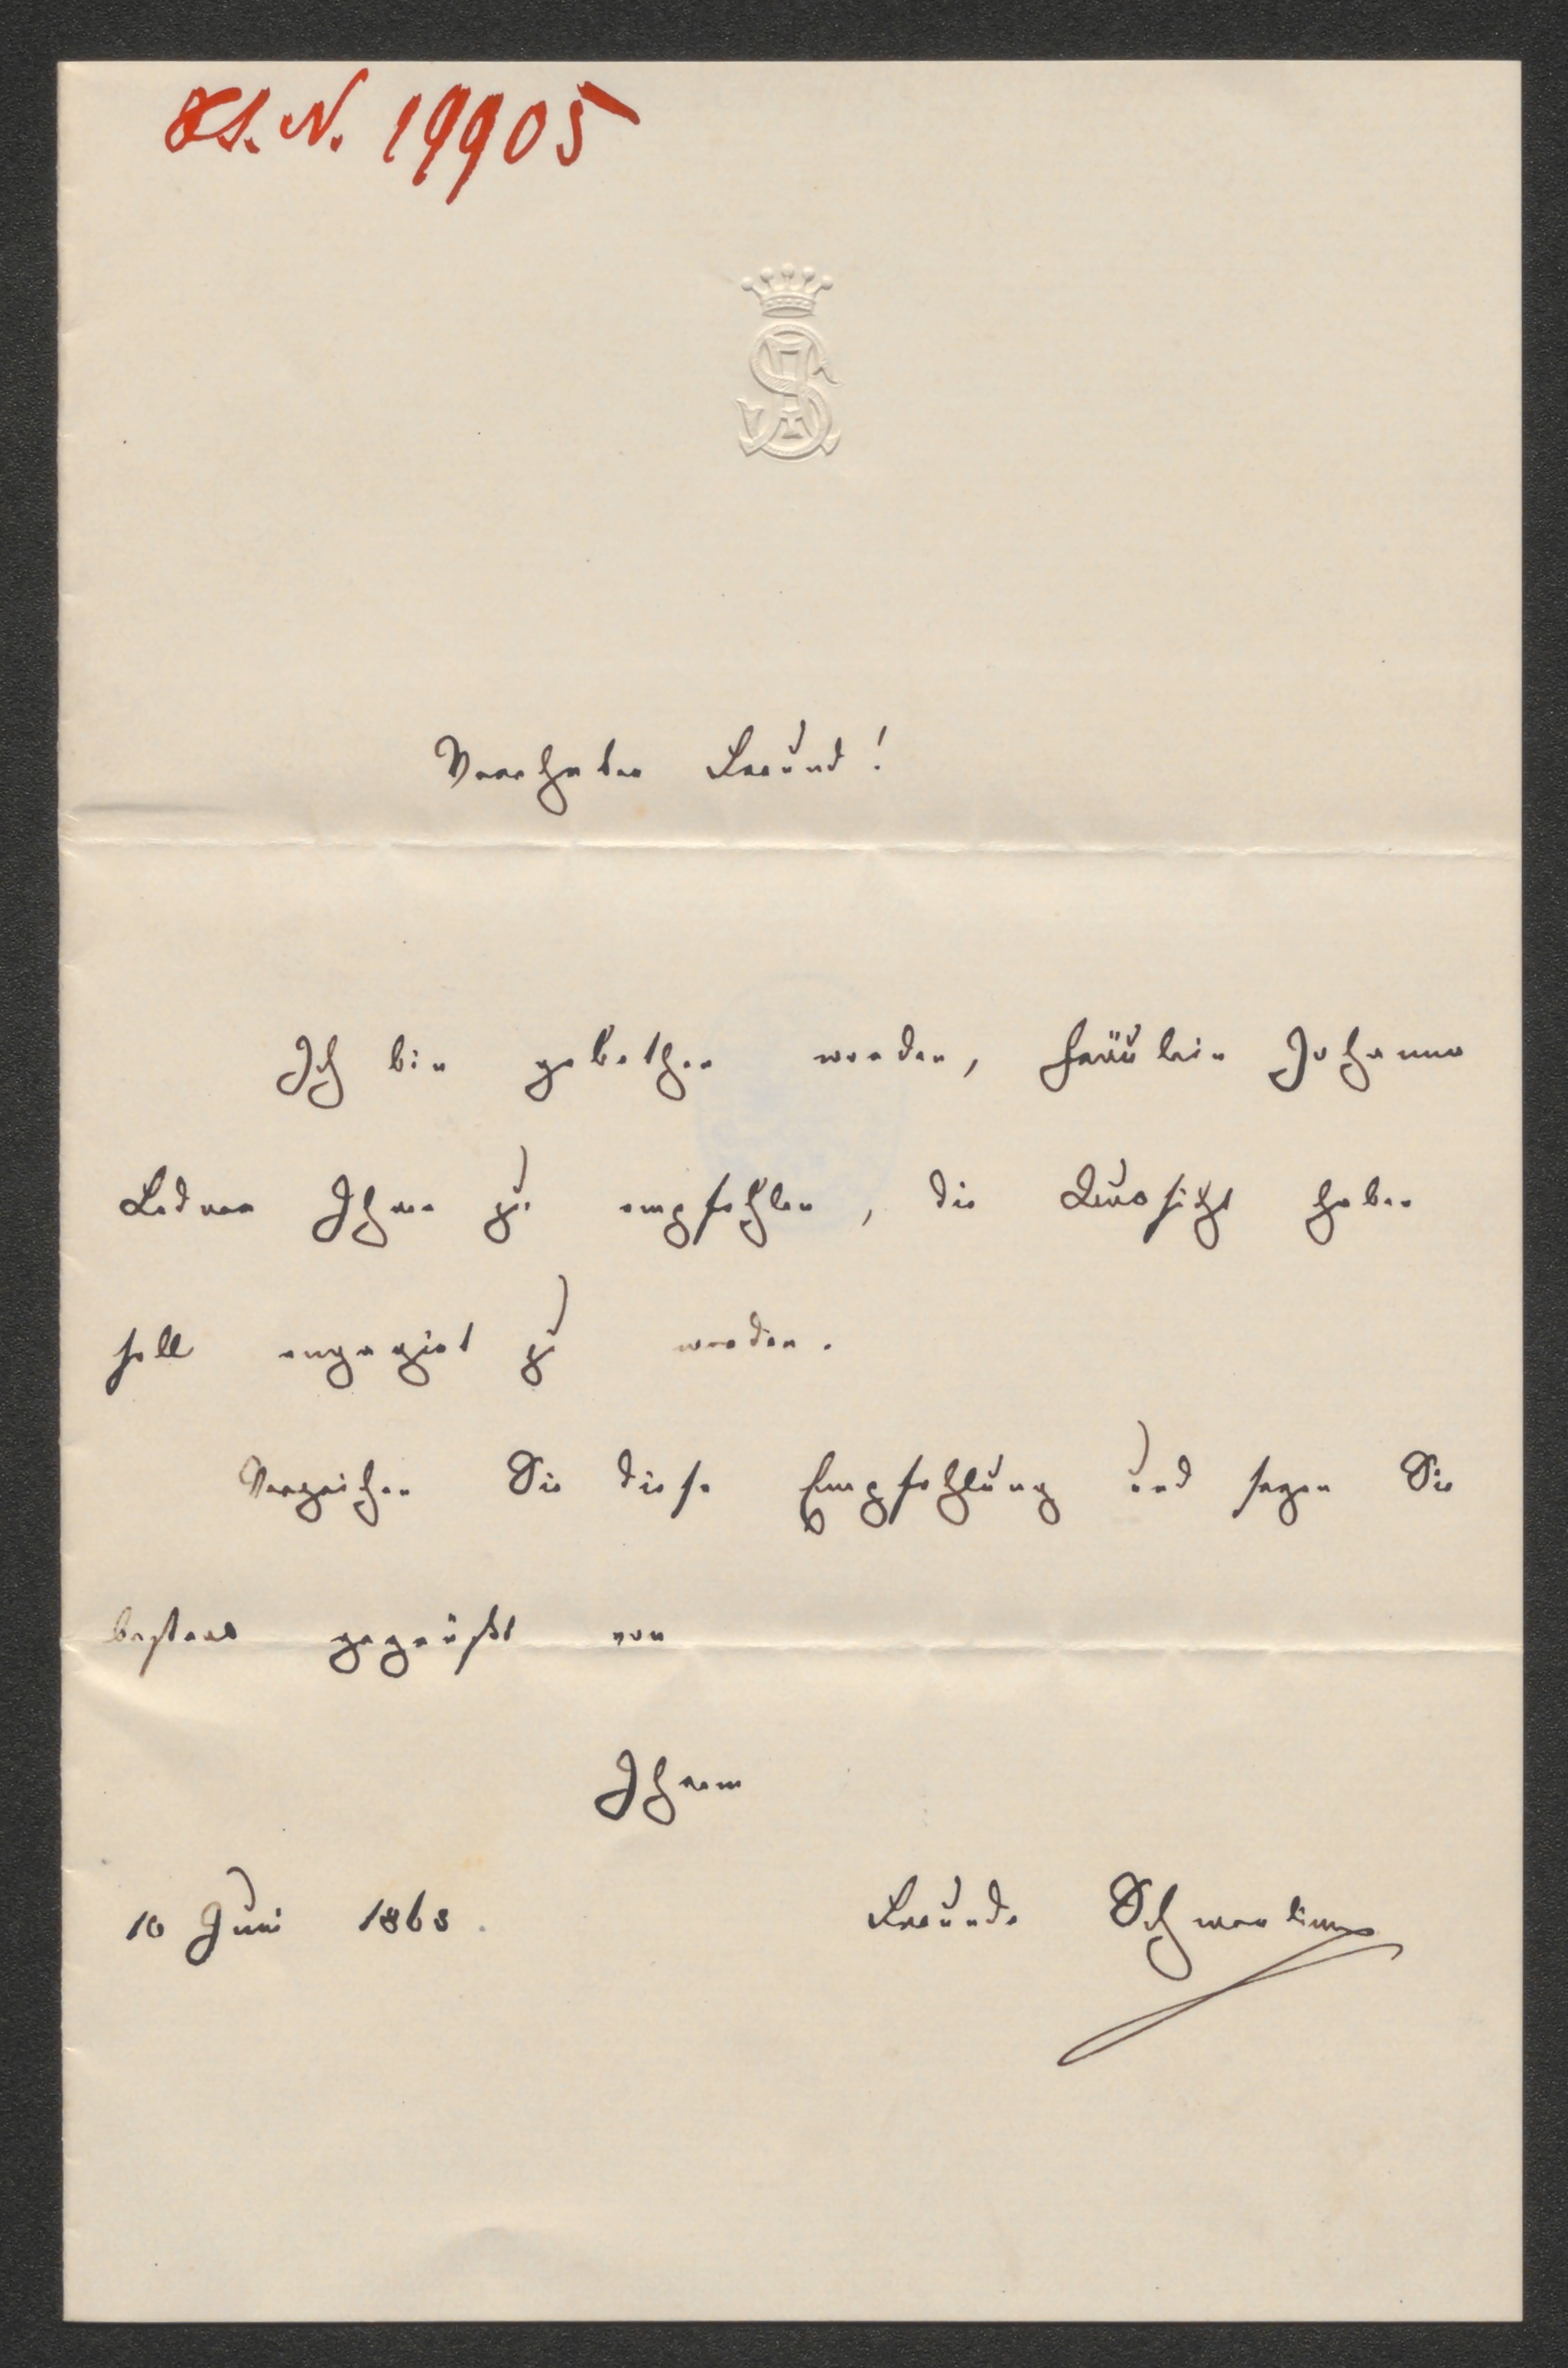 H.I.N. 19905
Verehrter Freund!
Ich bin gebethen worden, Fräulein Johanna
Ledner Ihnen zu empfehlen, die Aussicht haben
soll engagirt zu werden.
Verzeihen Sie diese Empfehlung und seyen Sie
bestens gegrüßt von
Ihrem
10 Juni 1868. Freunde